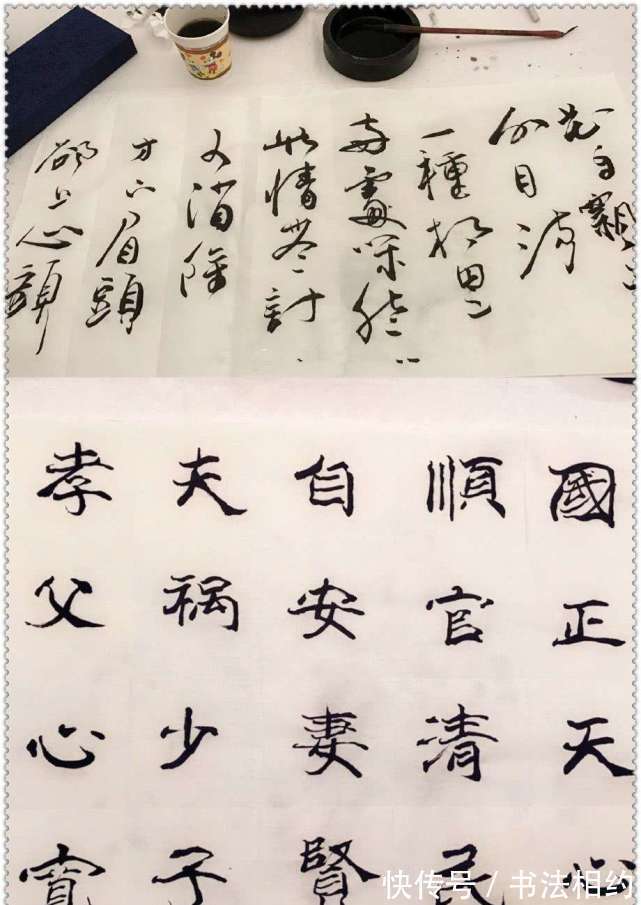 花自飄
水自流
一種相思
兩處閑愁
此情無計
可消除
才下眉頭
卻上心頭
國正天心
順官清民
自安妻賢
夫禍少子
孝父心寬
快传号 / 书法相约